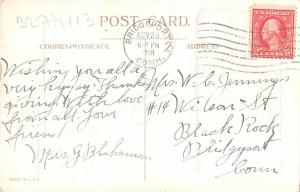 POST CARD
BRIDGEPORT
NOV 29
6-PM
CONN.
2
CORRESPONDENCE
ADDRESS
Wishing you all a
very happy Thanks
giving with love
from all your
friend
Mrs. G. Blakeman
Mrs. W. C. Jennings
#14 Wilson St
Black Rock
Bridgeport
Conn
MADE IN U.S.A.